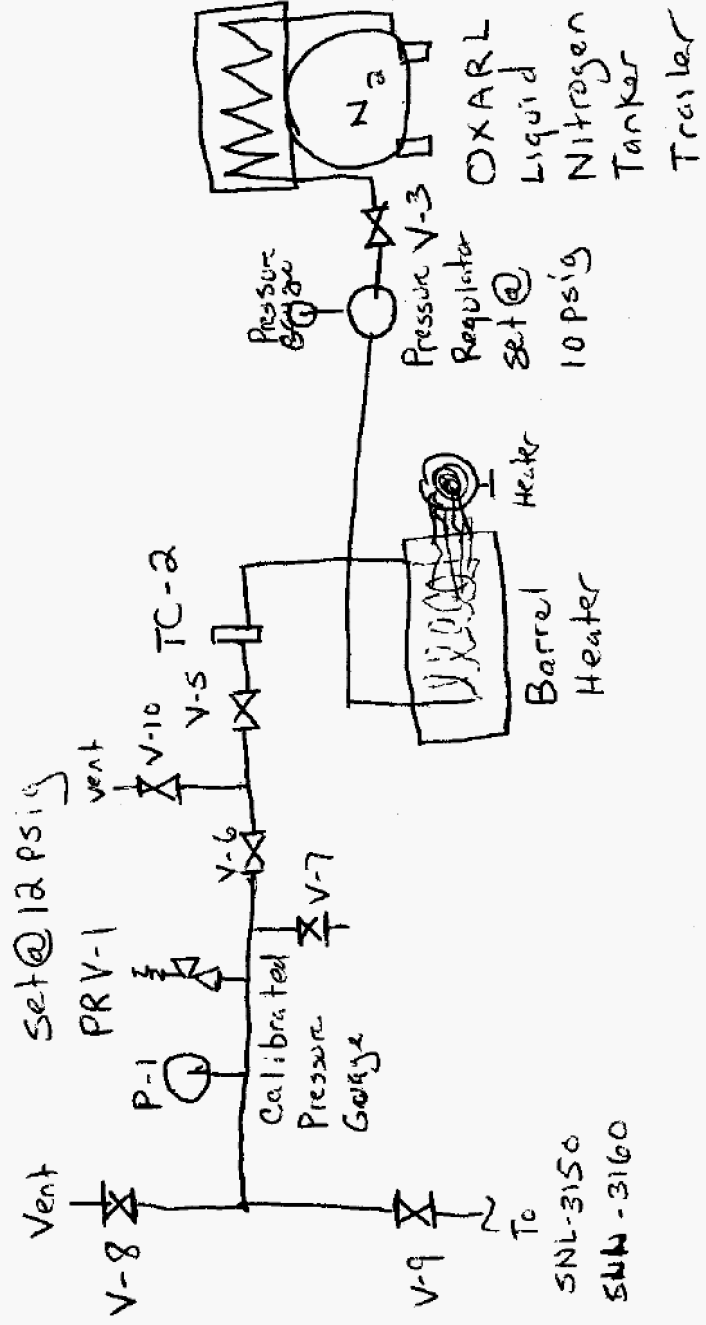 Vent
V-8
V-9
To
SNL-3150
SNN-3160
P-1
Calibrated
Pressure
Gauge
Set@12 psig
PRV-1
V-7
V-6
vent
V-10
V-5
TC-2
Barrel
Heater
Heater
Pressure
Gauge
Pressure
Regulator
Set@
10 psig
V-3
N2
OXARL
Liquid
Nitrogen
Tanker
Trailer